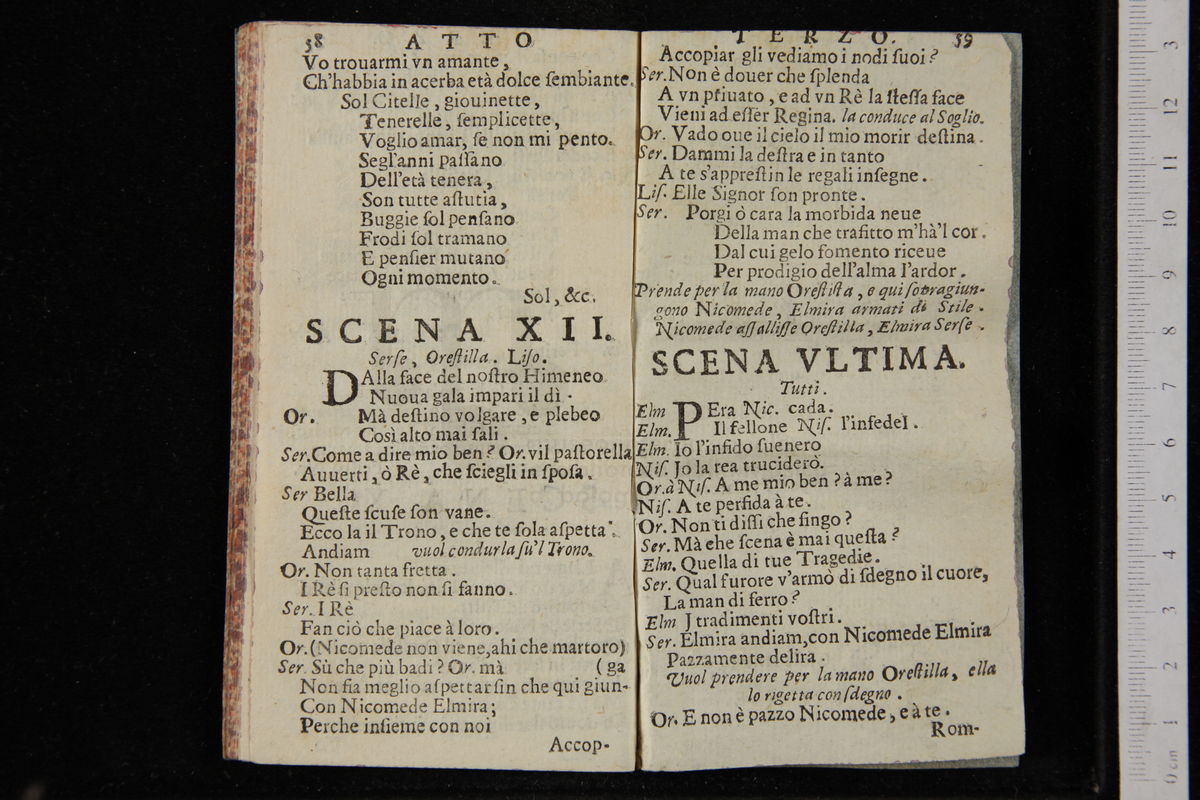 58 ATTO
Vo trouarmi vn amante,
Ch'habbia in acerba età dolce ſembiante.
Sol Citelle, giouinette,
Tenerelle, ſemplicette,
Voglio amar, ſe non mi pento.
Segl'anni paſſano
Dell'età tenera,
Son tutte aſtutia,
Buggie ſol penſano
Frodi ſol tramano
E penſier mutano
Ogni momento.
Sol, &c.
SCENA XII.
Serſe, Oreſtilla. Liſo.
DAlla face del noſtro Himeneo
Nuoua gala impari il dì.
Or. Mà deſtino volgare, e plebeo
Così alto mai ſali.
Ser. Come a dire mio ben? Or. vil paſtorella
Auuerti, ò Rè, che ſciegli in ſpoſa.
Ser Bella
Queſte ſcuſe ſon vane.
Ecco la il Trono, e che te ſola aſpetta.
Andiam vuol condurla ſu'l Trono.
Or. Non tanta fretta.
I Rè ſi preſto non ſi fanno.
Ser. I Rè
Fan ciò che piace à loro.
Or. (Nicomede non viene, ahi che martoro)
Ser. Sù che più badi? Or. mà (ga
Non fia meglio aſpettar ſin che qui giun-
Con Nicomede Elmira;
Perche inſieme con noi
Accop-
TERZO. 59
Accopiar gli vediamo i nodi ſuoi?
Ser. Non è douer che ſplenda
A vn priuato, e ad vn Rè la ſteſſa face
Vieni ad eſſer Regina. la conduce al Soglio.
Or. Vado oue il cielo il mio morir deſtina.
Ser. Dammi la deſtra e in tanto
A te s'appreſtin le regali inſegne.
Liſ. Elle Signor ſon pronte.
Ser. Porgi ò cara la morbida neue
Della man che trafitto m'hà'l cor.
Dal cui gelo fomento riceue
Per prodigio dell'alma l'ardor.
Prende per la mano Oreſtilla, e qui ſopragiun-
gono Nicomede, Elmira armati di Stile.
Nicomede aſſalliſſe Oreſtilla, Elmira Serſe.
SCENA VLTIMA.
Tutti.
Elm PEra Nic. cada.
Elm. Il fellone Niſ. l'infedel.
Elm. Io l'infido ſuenero
Niſ. Io la rea truciderò.
Or. à Niſ. A me mio ben? à me?
Niſ. A te perfida à te.
Or. Non ti diſſi che fingo?
Ser. Mà che ſcena è mai queſta?
Elm. Quella di tue Tragedie.
Ser. Qual furore v'armò di ſdegno il cuore,
La man di ferro?
Elm I tradimenti voſtri.
Ser. Elmira andiam, con Nicomede Elmira
Pazzamente delira.
Vuol prendere per la mano Oreſtilla, ella
lo rigetta con ſdegno.
Or. E non è pazzo Nicomede, e à te.
Rom-
3
12
11
10
9
8
7
6
5
4
3
2
1
0 cm